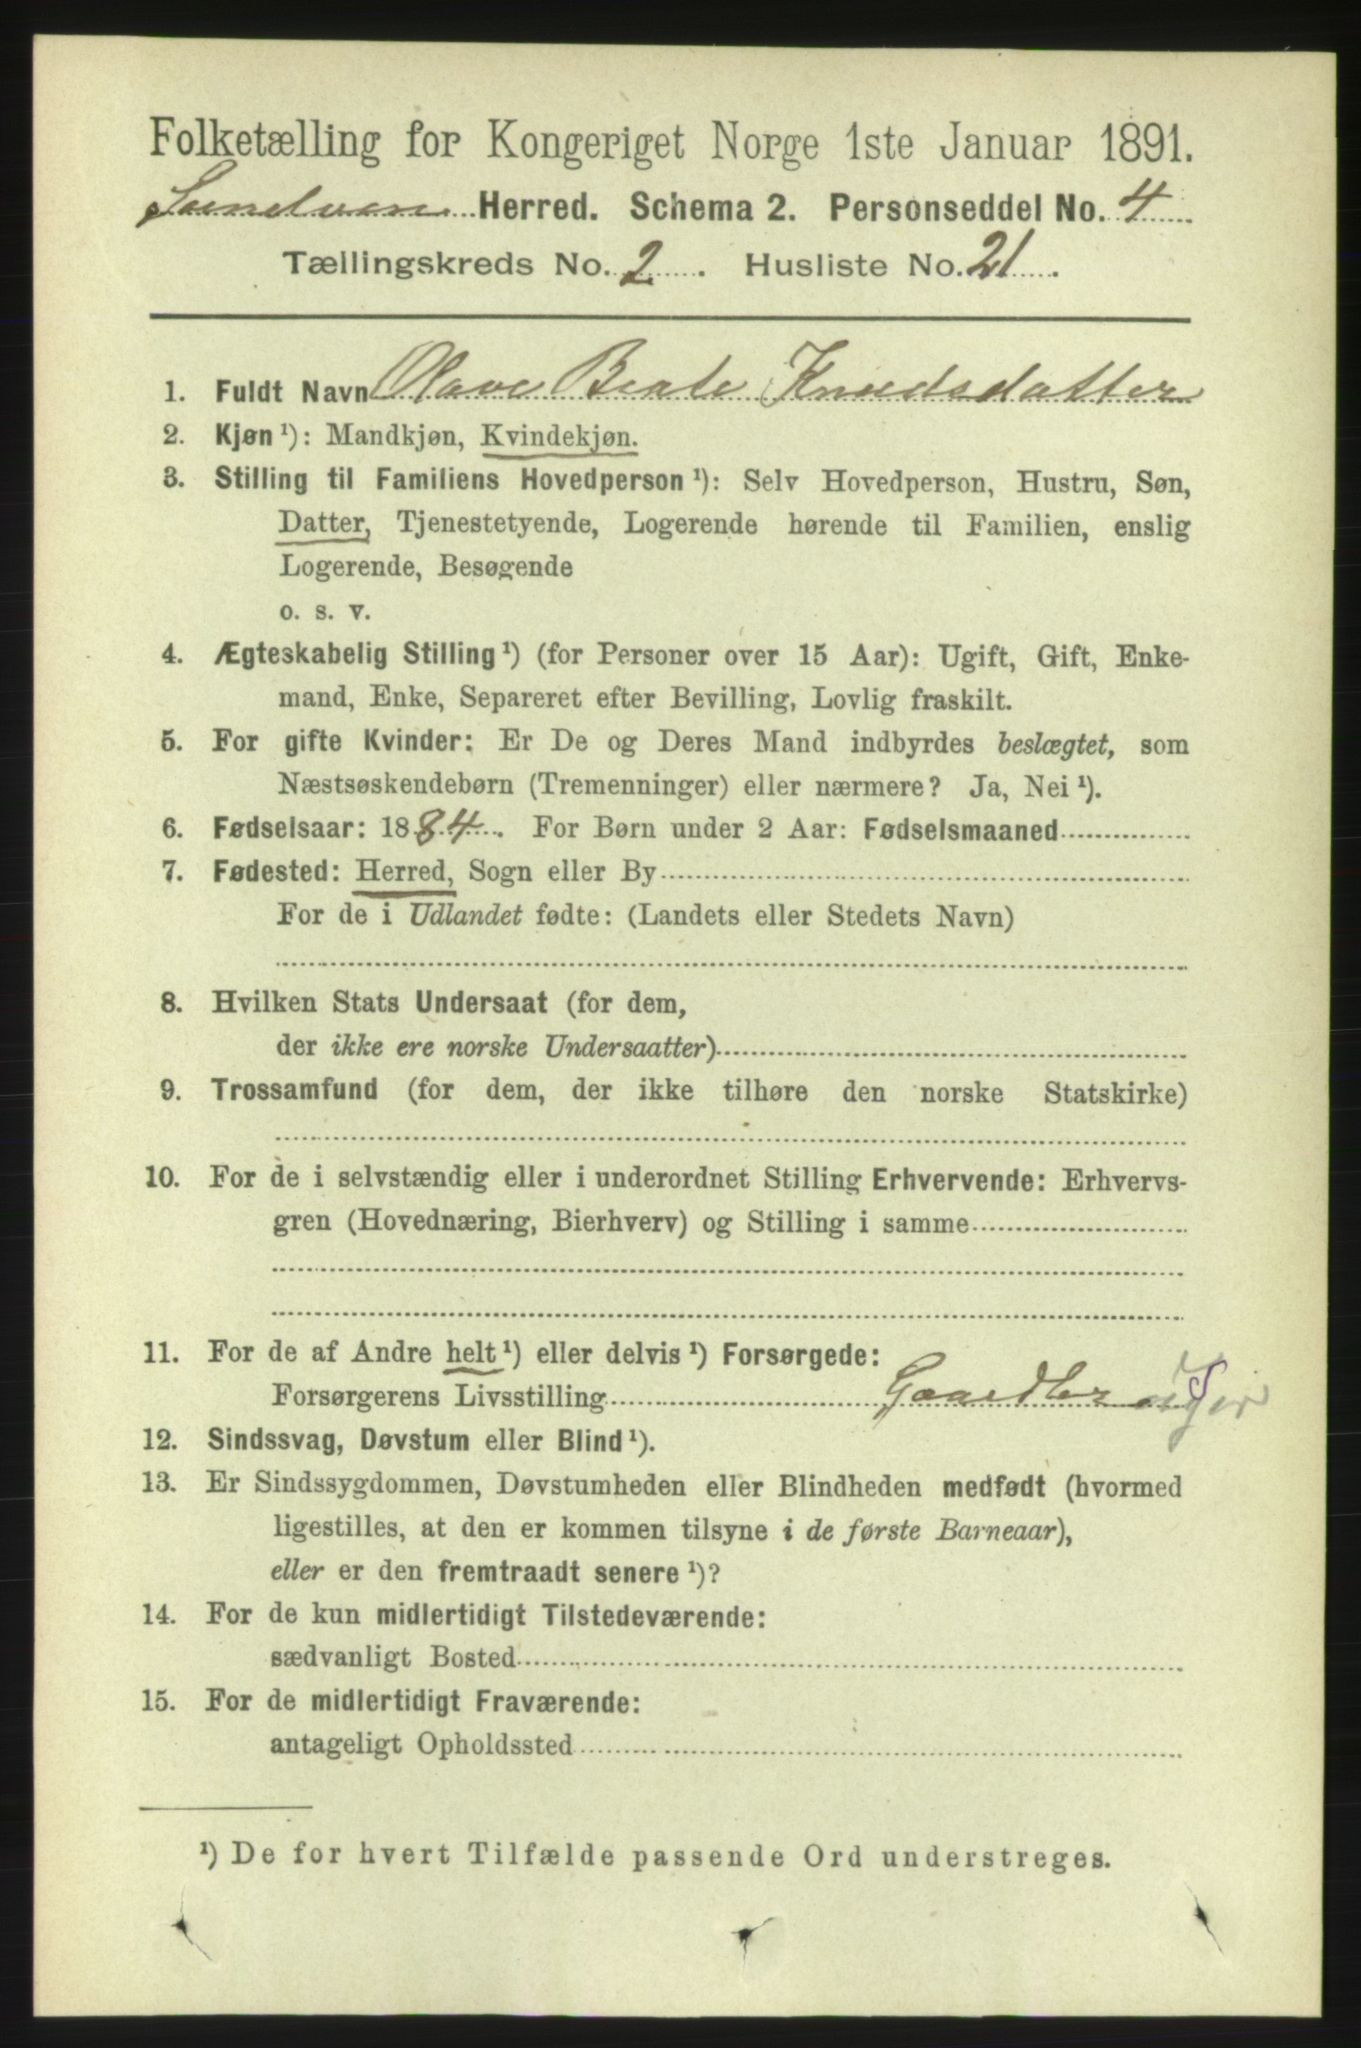 Folketælling for Kongeriget Norge 1ste Januar 1891.
Sundven Herred. Schema 2. Personseddel No. 4
Tællingskreds No. 2. Husliste No. 21.
1. Fuldt Navn Olave Beate Knudsdatter
2. Kjøn ¹): Mandkjøn, Kvindekjøn.
3. Stilling til Familiens Hovedperson ¹): Selv Hovedperson, Hustru, Søn,
Datter, Tjenestetyende, Logerende hørende til Familien, enslig
Logerende, Besøgende
o. s. v.
4. Ægteskabelig Stilling ¹) (for Personer over 15 Aar): Ugift, Gift, Enke-
mand, Enke, Separeret efter Bevilling, Lovlig fraskilt.
5. For gifte Kvinder: Er De og Deres Mand indbyrdes beslægtet, som
Næstsøskendebørn (Tremenninger) eller nærmere? Ja, Nei ¹).
6. Fødselsaar: 1884. For Børn under 2 Aar: Fødselsmaaned
7. Fødested: Herred, Sogn eller By
For de i Udlandet fødte: (Landets eller Stedets Navn)
8. Hvilken Stats Undersaat (for dem,
der ikke ere norske Undersaatter)
9. Trossamfund (for dem, der ikke tilhøre den norske Statskirke)
10. For de i selvstændig eller i underordnet Stilling Erhvervende: Erhvervs-
gren (Hovednæring, Bierhverv) og Stilling i samme
11. For de af Andre helt ¹) eller delvis ¹) Forsørgede:
Forsørgerens Livsstilling Gaardbruger
12. Sindssvag, Døvstum eller Blind ¹).
13. Er Sindssygdommen, Døvstumheden eller Blindheden medfødt (hvormed
ligestilles, at den er kommen tilsyne i de første Barneaar),
eller er den fremtraadt senere ¹)?
14. For de kun midlertidigt Tilstedeværende:
sædvanligt Bosted
15. For de midlertidigt Fraværende:
antageligt Opholdssted
¹) De for hvert Tilfælde passende Ord understreges.